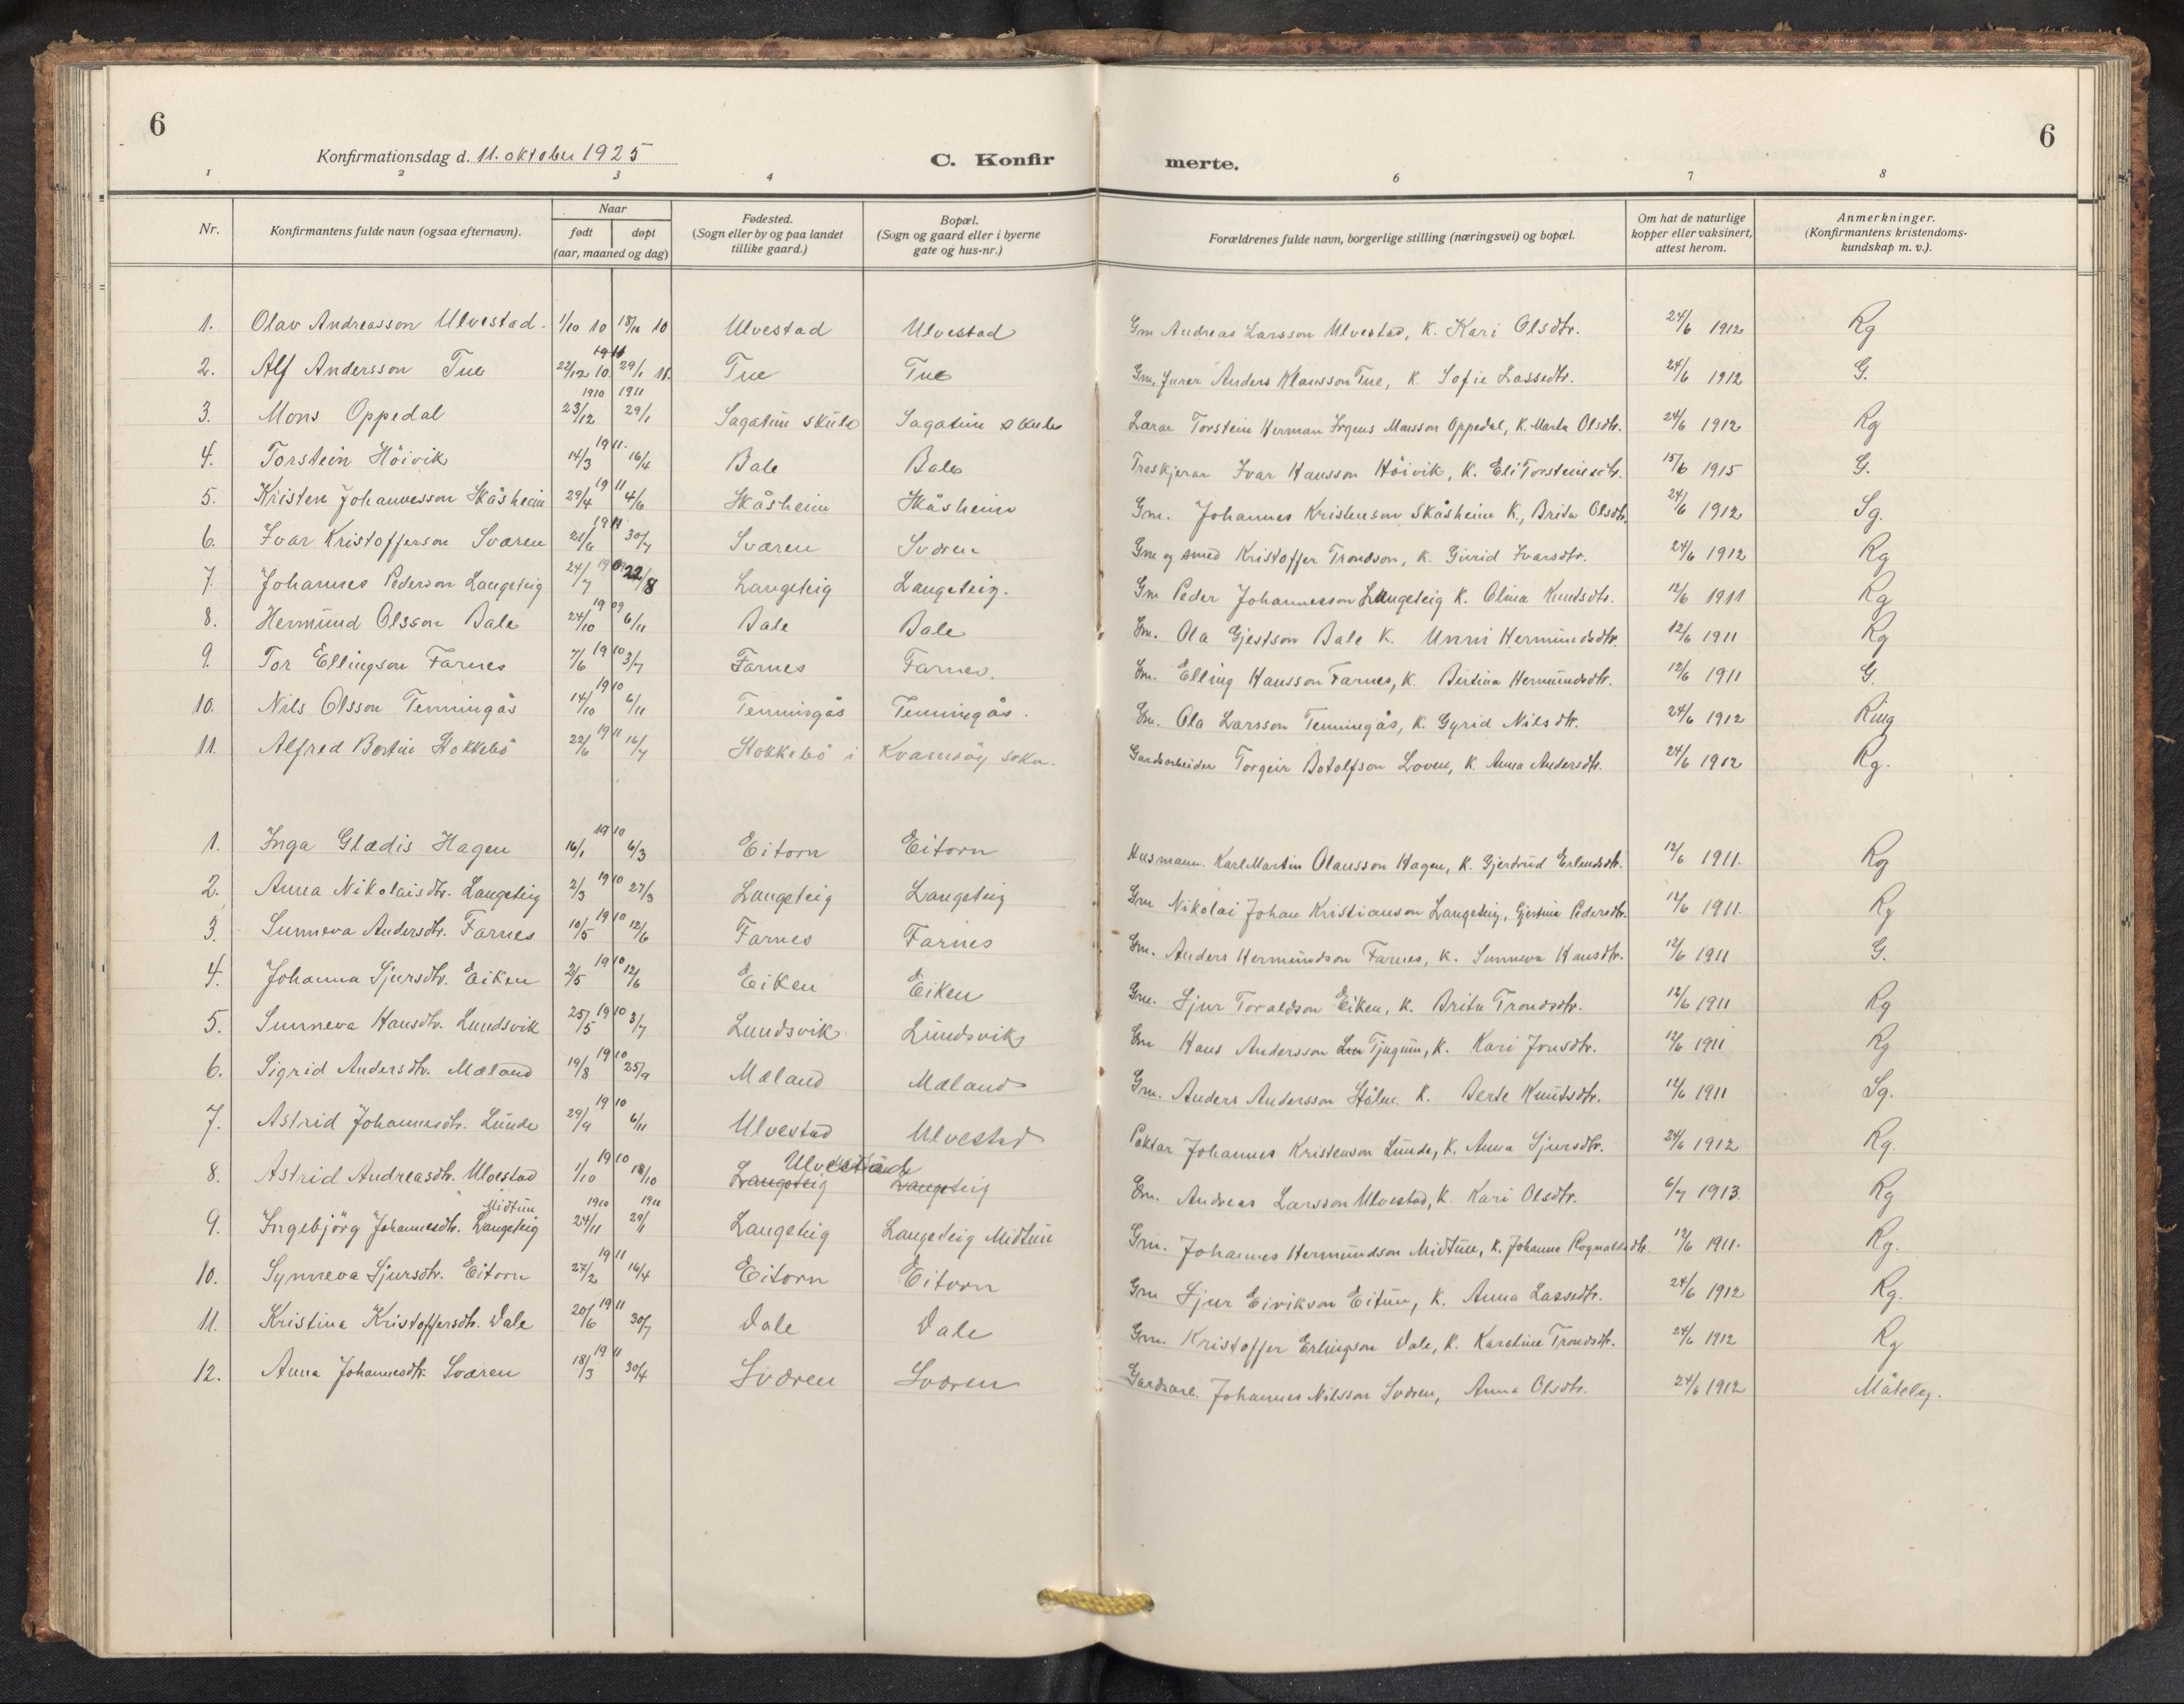 6
6
Konfirmationsdag d. 11. oktober 1925
C. Konfir merte.
1 2 3 4 6 7 8
Nr. Konfirmantens fulde navn (ogsaa efternavn). Naar født døpt (aar, maaned og dag) Fødested. (Sogn eller by og paa landet tillike gaard.) Bopæl. (Sogn og gaard eller i byerne gate og hus-nr.) Forældrenes fulde navn, borgerlige stilling (næringsvei) og bopæl. Om hat de naturlige kopper eller vaksinert, attest herom. Anmerkninger. (Konfirmantens kristendoms-kundskap m. v.).
1. Olav Andreasson Ulvestad. 1/10 10 18/10 10 Ulvestad Ulvestad Gm Andreas Larsson Ulvestad, K. Kari Olsdtr. 24/6 1912 Rg
2. Alf Andersson Tue 22/12 10 1911 29/1 11. Tue Tue Gm, furer Anders Klausson Tue, K. Sofie Lassedtr. 24/6 1912 G.
3. Mons Oppedal 1910 23/12 1911 29/1 Sagatun skule Sagatun skule Lærar Torstein Herman Monsson Oppedal, K. Marta Olsdtr. 24/6 1912 Rg
4. Torstein Höivik 14/3 1911. 16/4 Bale Bale Treskjerar Ivar Hansson Höivik, K. Eli Torsteinsdtr. 15/6 1915 G.
5. Kristen Johannesson Skåsheim 29/4 1911 4/6 Skåsheim Skåsheim Gm. Johannes Kristenson Skåsheim K., Brita Olsdtr. 24/6 1912 Sg.
6. Ivar Kristofferson Sværen 21/6 1911 30/7 Sværen Sværen Gm og smed Kristoffer Trondson, K. Gurid Ivarsdtr. 24/6 1912 Rg
7. Johannes Pederson Langeteig 24/7 1909 22/8 Langeteig Langeteig. Gm Peder Johannesson Langeteig K. Olina Knutsdtr. 12/6 1911 Rg
8. Hermund Olsson Bale 24/10 1909 6/11 Bale Bale Gm. Ola Gjestson Bale K. Unni Hermundsdtr. 12/6 1911 Rg
9. Tor Ellingson Farnes 7/6 1910 3/7 Farnes Farnes. Gm. Elling Hansson Farnes, K. Bertina Hermundsdtr. 12/6 1911 G.
10. Nils Olsson Tenningås 14/10 1910 6/11 Tenningås Tenningås. Gm. Ola Larsson Tenningås, K. Gyrid Nilsdtr. 24/6 1912 Ring
11. Alfred Bertin Stokkebö 22/6 1911 16/7 Stokkebö i Kvamsöy sokn. Gardsarbeider Torgeir Botolfson Loven, K. Anna Andersdtr. 24/6 1912 Rg.
1. Inga Glædis Hagen 16/1 1910 6/3 Eitorn Eitorn Husmann. Karl Martin Olausson Hagen, K. Gjertrud Erlendsdtr. 12/6 1911. Rg
2. Anna Nikolaisdtr. Langeteig 2/3 1910 27/3 Langeteig Langeteig Gm Nikolai Johan Kristianson Langeteig, Gjertina Pedersdtr. 12/6 1911. Rg
3. Sunneva Andersdtr. Farnes 10/5 1910 12/6 Farnes Farnes Gm. Anders Hermundson Farnes, K. Sunneva Hansdtr. 12/6 1911 G.
4. Johanna Sjursdtr. Eiken 2/5 1910 12/6 Eiken Eiken Gm. Sjur Toraldson Eiken, K. Brita Trondsdtr. 12/6 1911 Rg
5. Sunneva Hansdtr. Lundsvik 25/5 1910 3/7 Lundsvik Lundsvik Gm Hans Andersson Lun Tjugum, K. Kari Jonsdtr. 12/6 1911 Rg
6. Sigrid Andersdtr. Mæland 19/8 1910 25/9 Mæland Mæland Gm. Anders Andersson K. Berte Knutsdtr. 12/6 1911 Sg.
7. Astrid Johannesdtr. Lunde 29/9 1910 6/11 Ulvestad Ulvestad Paktar Johannes Kristenson Lunde, K. Anna Sjursdtr. 24/6 1912 Rg.
8. Astrid Andreasdtr. Ulvestad 1/10 1910 18/10 Ulvestad Langeteig Langeteig Gm. Andreas Larsson Ulvestad, K. Kari Olsdtr. 6/7 1913 Rg
9. Ingebjörg Johannesdtr. Langeteig Midtun 1910 24/11 1911 29/1 Langeteig Langeteig Midtun Gm. Johannes Hermundson Midtun, K. Johanne Rognaldsdtr. 12/6 1911. Rg.
10. Synneva Sjursdtr. Eitorn 27/2 1911 16/4 Eitorn Eitorn Gm. Sjur Eirikson Eitun, K. Anna Lassedtr. 24/6 1912 Rg.
11. Kristina Kristoffersdtr. Dale 20/6 1911 30/7 Dale Dale Gm. Kristoffer Erlingson Dale, K. Karoline Trondsdtr. 24/6 1912 Rg
12. Anna Johannesdtr. Sværen 18/3 1911 30/4 Sværen Sværen Gardsarb. Johannes Nilsson Sværen, Anna Olsdtr. 24/6 1912 Måteleg.